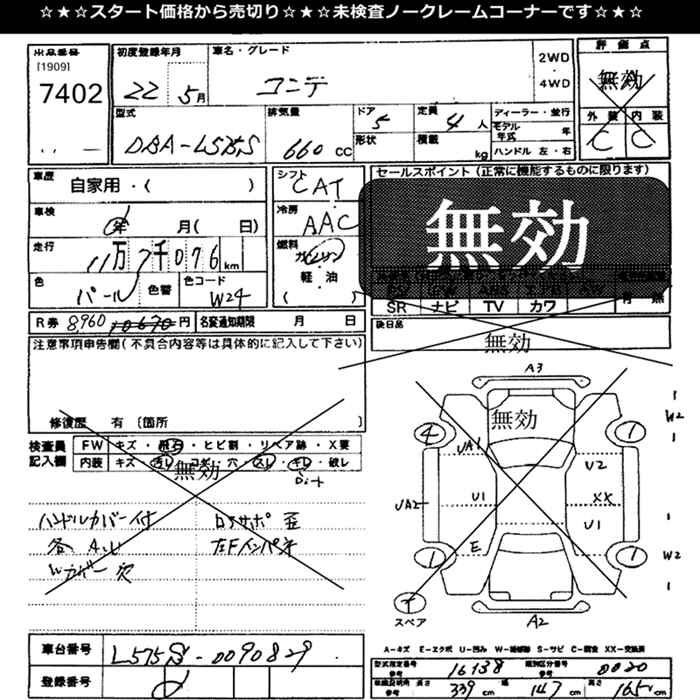 ☆★☆★スタート価格から売切り☆★☆★未検査ノークレームコーナーです☆★☆
出品番号
[1909]
7402
初度登録年月
22 5月
車名・グレード
コンテ
2WD
4WD
評価点
無効
外装 内装
C C
型式
DBA-L575S
排気量
660 cc
ドア
5
形状
定員
4 人
積載
kg
ディーラー・並行
モデル年式 年
ハンドル 左・右
車歴
自家用・( )
車検
年 月( 日)
走行
11万7千076 km
色
パール
色替
色コード
W24
シフト
CAT
冷房
AAC
燃料
ガソリン
軽油
( )
セールスポイント(正常に機能するものに限ります)
無効
SR ナビ TV カワ
有 無
後日品
無効
R券 8,960 10670 円
名変通知期限 月 日
注意事項申告欄(不具合内容等は具体的に記入して下さい)
修復歴 有 〔箇所 〕
検査員記入欄
FW キズ・飛石・ヒビ割・リペア跡・X要
内装 キズ・汚れ・コゲ・穴・スレ・キレ・破レ
シート
無効
ハンドルカバー付
各A,U
Wカバー欠
コアサポ歪
左Fインパネ
A3
無効
4
1
UA1
U2
W2
UA2
U1
XX
U1
1
E
1
W2
T
スペア
A2
A-キズ E-エクボ U-凹み W-補修跡 S-サビ C-腐食 XX-交換済
車台番号
L575S-0090829
登録番号
型式指定番号
参考
16138
類別区分番号
参考
0020
車両諸元 長さ
参考
339 cm
幅
147 cm
高さ
165 cm